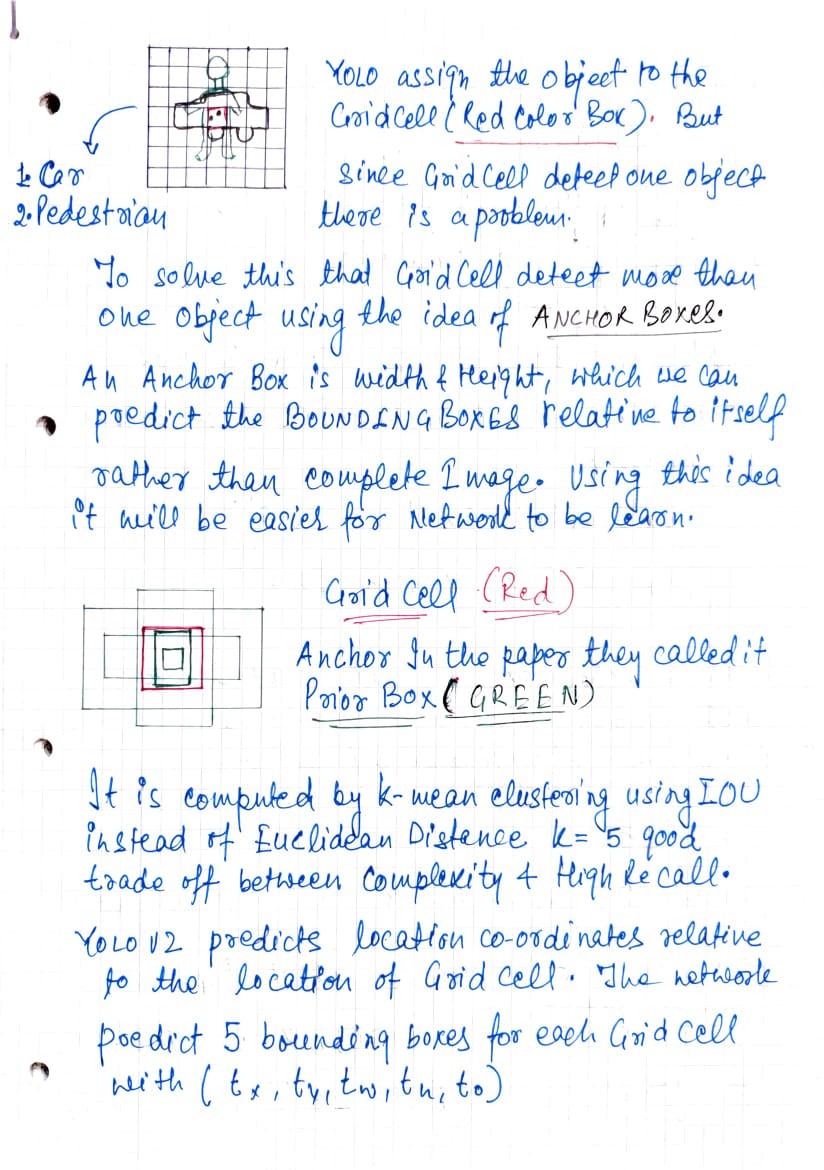 YOLO assign the object to the
Grid Cell (Red Color Box). But
1. Car
2. Pedestrian
since Grid Cell detect one object
there is a problem.
To solve this that Grid Cell detect more than
one object using the idea of ANCHOR BOXES.
An Anchor Box is width & Height, which we can
predict the BOUNDING BOXES relative to itself
rather than complete Image. Using this idea
it will be easier for Network to be learn.
Grid Cell (Red)
Anchor In the paper they called it
Prior Box (GREEN)
It is computed by k-mean clustering using IOU
instead of Euclidean Distance k= 5 good
trade off between Complexity & High Recall.
YOLO V2 predicts location co-ordinates relative
to the location of Grid cell. The network
predict 5 bounding boxes for each Grid Cell
with (tx, ty, tw, th, to)